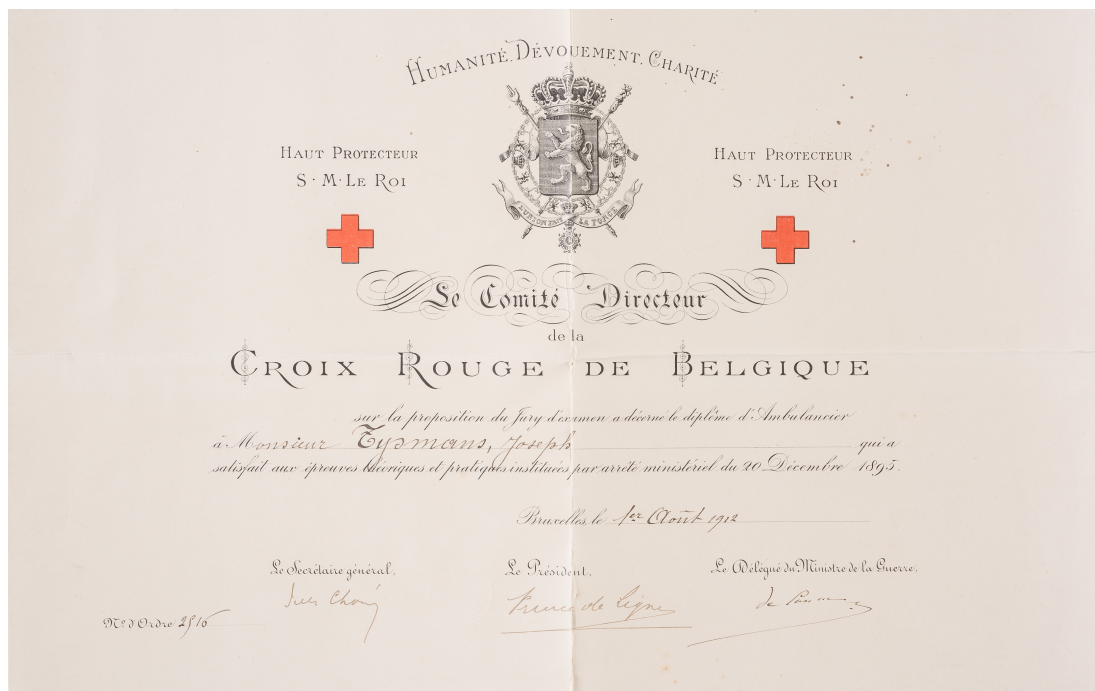 HUMANITÉ. DÉVOUEMENT. CHARITÉ
HAUT PROTECTEUR
S·M·LE ROI
HAUT PROTECTEUR
S·M·LE ROI
L'UNION FAIT LA FORCE
Le Comité Directeur
de la
CROIX ROUGE DE BELGIQUE
sur la proposition du Jury d'examen a décerné le diplôme d'Ambulancier
à Monsieur Typmans, Joseph qui a
satisfait aux épreuves théoriques et pratiques instituées par arrêté ministériel du 20 Décembre 1895.
Bruxelles, le 1er Août 1912
Le Secrétaire général,
Le Président,
Le Délégué du Ministre de la Guerre,
Prince de Ligne
de
No d'Ordre 2516